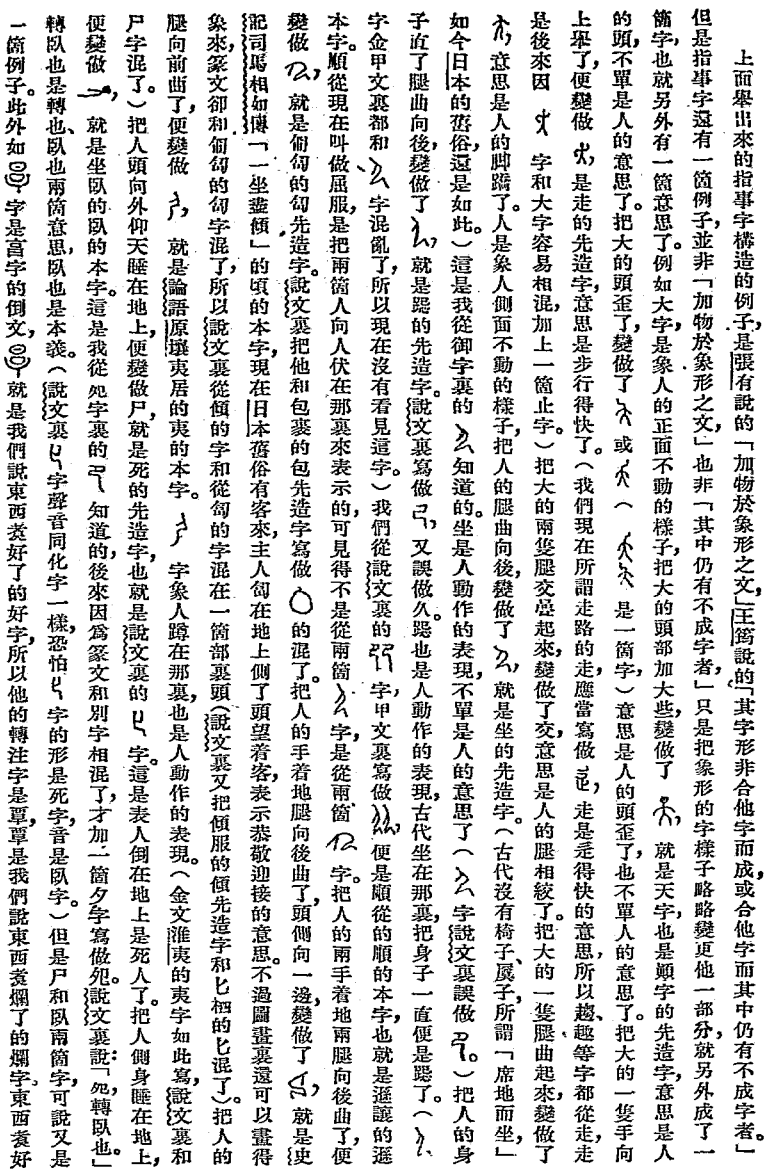 上面舉出來的指事字構造的例子，是張有說的「加物於象形之文，」王筠說的「其字形非合他字而成，或合他字而其中仍有不成字者。」
但是指事字還有一箇例子，並非「加物於象形之文」也非「其中仍有不成字者」只是把象形的字樣子略略變更他一部分，就另外成了一
箇字，也就另外有一箇意思了。例如大字，是象人的正面不動的樣子，把大的頭部加大些，變做了 就是天字，也是顚字的先造字，意思是人
的頭，不單是人的意思了。把大的頭歪了，變做了 或 （ 是一箇字）意思是人的頭歪了，也不單人的意思了。把大的一隻手向
上舉了，便變做 是走的先造字，意思是步行得快了。（我們現在所謂走路的走，應當寫做 走是走得快的意思，所以趨、趣等字都從走，走
是後來因 字和大字容易相混，加上一箇止字。）把大的兩隻腿交曡起來，變做了交，意思是人的腿相絞了。把大的一隻腿曲起來，變做了
意思是人的脚蹻了。人是象人側面不動的樣子，把人的腿曲向後，變做了 就是坐的先造字。（古代沒有椅子、凳子，所謂「席地而坐，」
如今日本的舊俗，還是如此。）這是我從御字裏的 知道的。坐是人動作的表現，不單是人的意思了（ 字說文裏誤做 。）把人的身
子直了，腿曲向後，變做了 就是跽的先造字。說文裏寫做 又誤做久。跽也是人動作的表現，古代坐在那裏，把身子一直，便是跽了。（
字金甲文裏都和 字混亂了，所以現在沒有看見這字。）我們從說文裏的 字，甲文裏寫做 便是順從的順的本字，也就是遜讓的遜
本字。順從現在叫做屈服，是把兩箇人向人伏在那裏來表示的，可見得不是從兩箇 字，是從兩箇 字。把人的兩手着地，兩腿向後曲了，便
變做 就是匍匐的匐先造字。說文裏把他和包裹的包先造字寫做 的混了。把人的手着地，腿向後曲了，頭側向一邊，變做了 就是史
記司馬相如傳「一坐盡傾」的傾的本字，現在日本舊俗有客來，主人匐在地上，側了頭望着客，表示恭敬迎接的意思。不過圖畫裏還可以畫得
象來，篆文卻和匍匐的匐字混了，所以說文裏從傾的字和從匐的字混在一箇部裏頭。（說文裏又把傾服的傾先造字和匕柶的匕混了。）把人的
腿向前曲了，便變做 就是論語原壤夷居的夷的本字。 字象人蹲在那裏，也是人動作的表現。（金文淮夷的夷字如此寫，說文裏和
尸字混了。）把人頭向外，仰天睡在地上，便變做尸，就是死的先造字，也就是說文裏的 字。這是表人倒在地上，是死人了。把人側身睡在地上，
便變做 就是坐臥的臥的本字。這是我從夗字裏的 知道的，後來因爲篆文和別字相混了，才加一箇夕字，寫做夗。說文裏說：「夗，轉臥也。」
轉臥也是轉也、臥也兩箇意思，臥也是本義。（說文裏 字聲音同化字一樣，恐怕 字的形是死字，音是臥字。）但是尸和臥兩箇字，可說又是
一箇例子。此外如 字是亯字的倒文， 就是我們說東西煑好了的好字，所以他的轉注字是覃，覃是我們說東西煑爛了的爛字。東西煑好